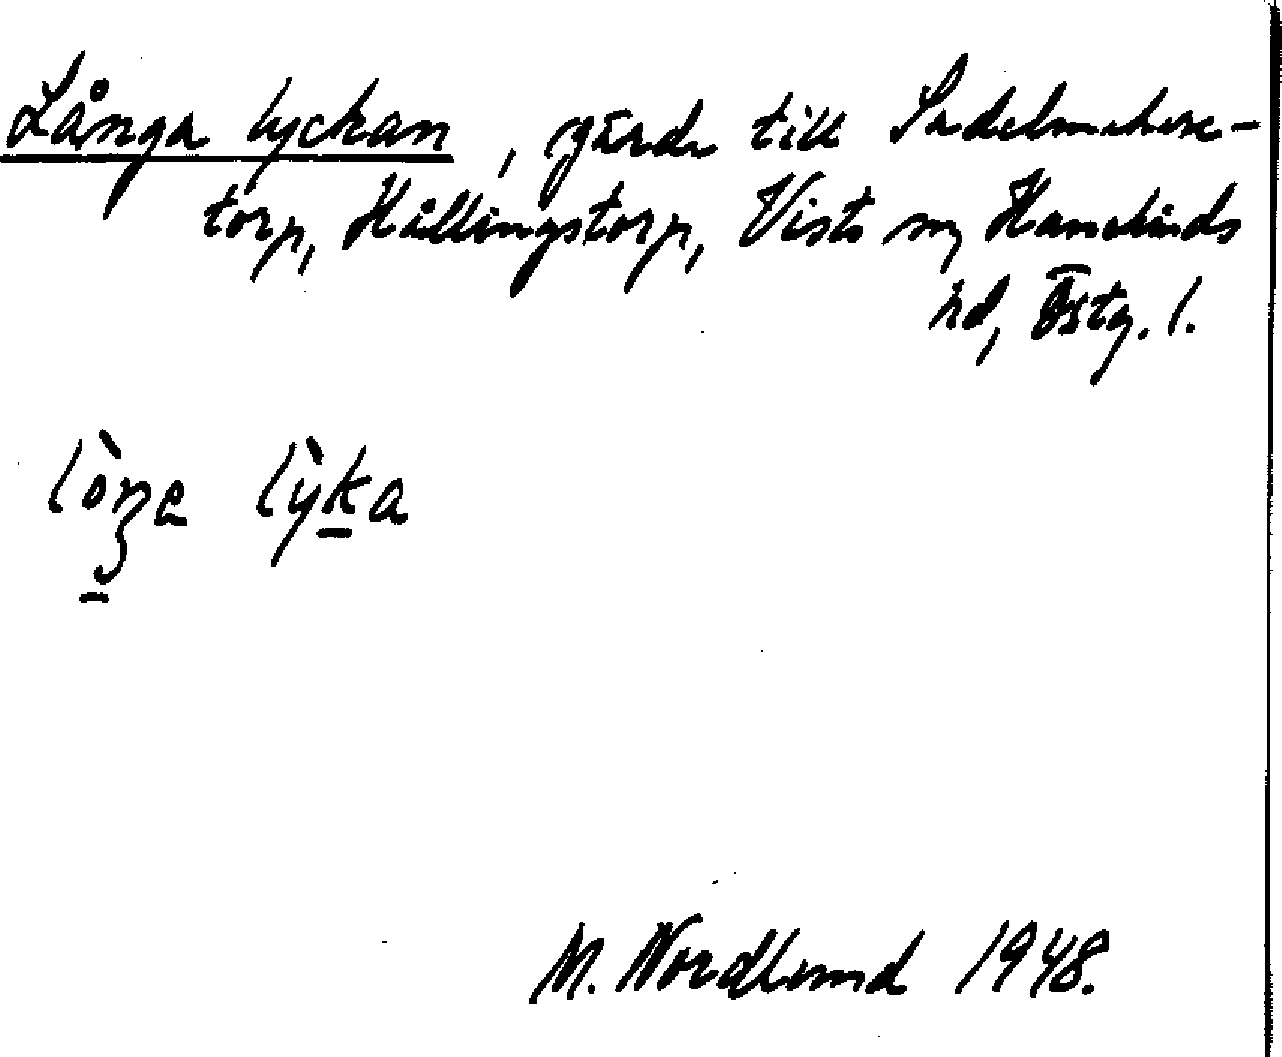 Långa lyckan, gärde till Sadelmakare-
torp, Hållingstorp, Vists sn, Hanekinds
hd, Östg. l.
lòŋa lỳka
M. Nordlund 1948.